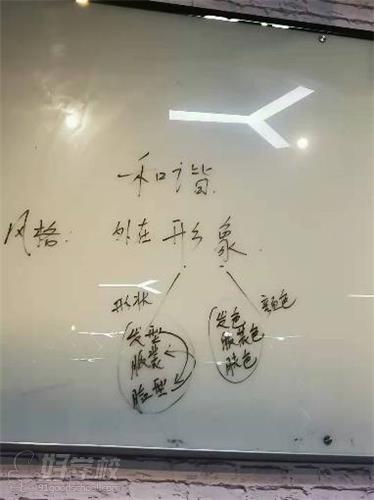 和谐
风格: 外在形象
形状 颜色
发型 发色
服装 服装色
脸型 肤色
好学校
91goodschool.com